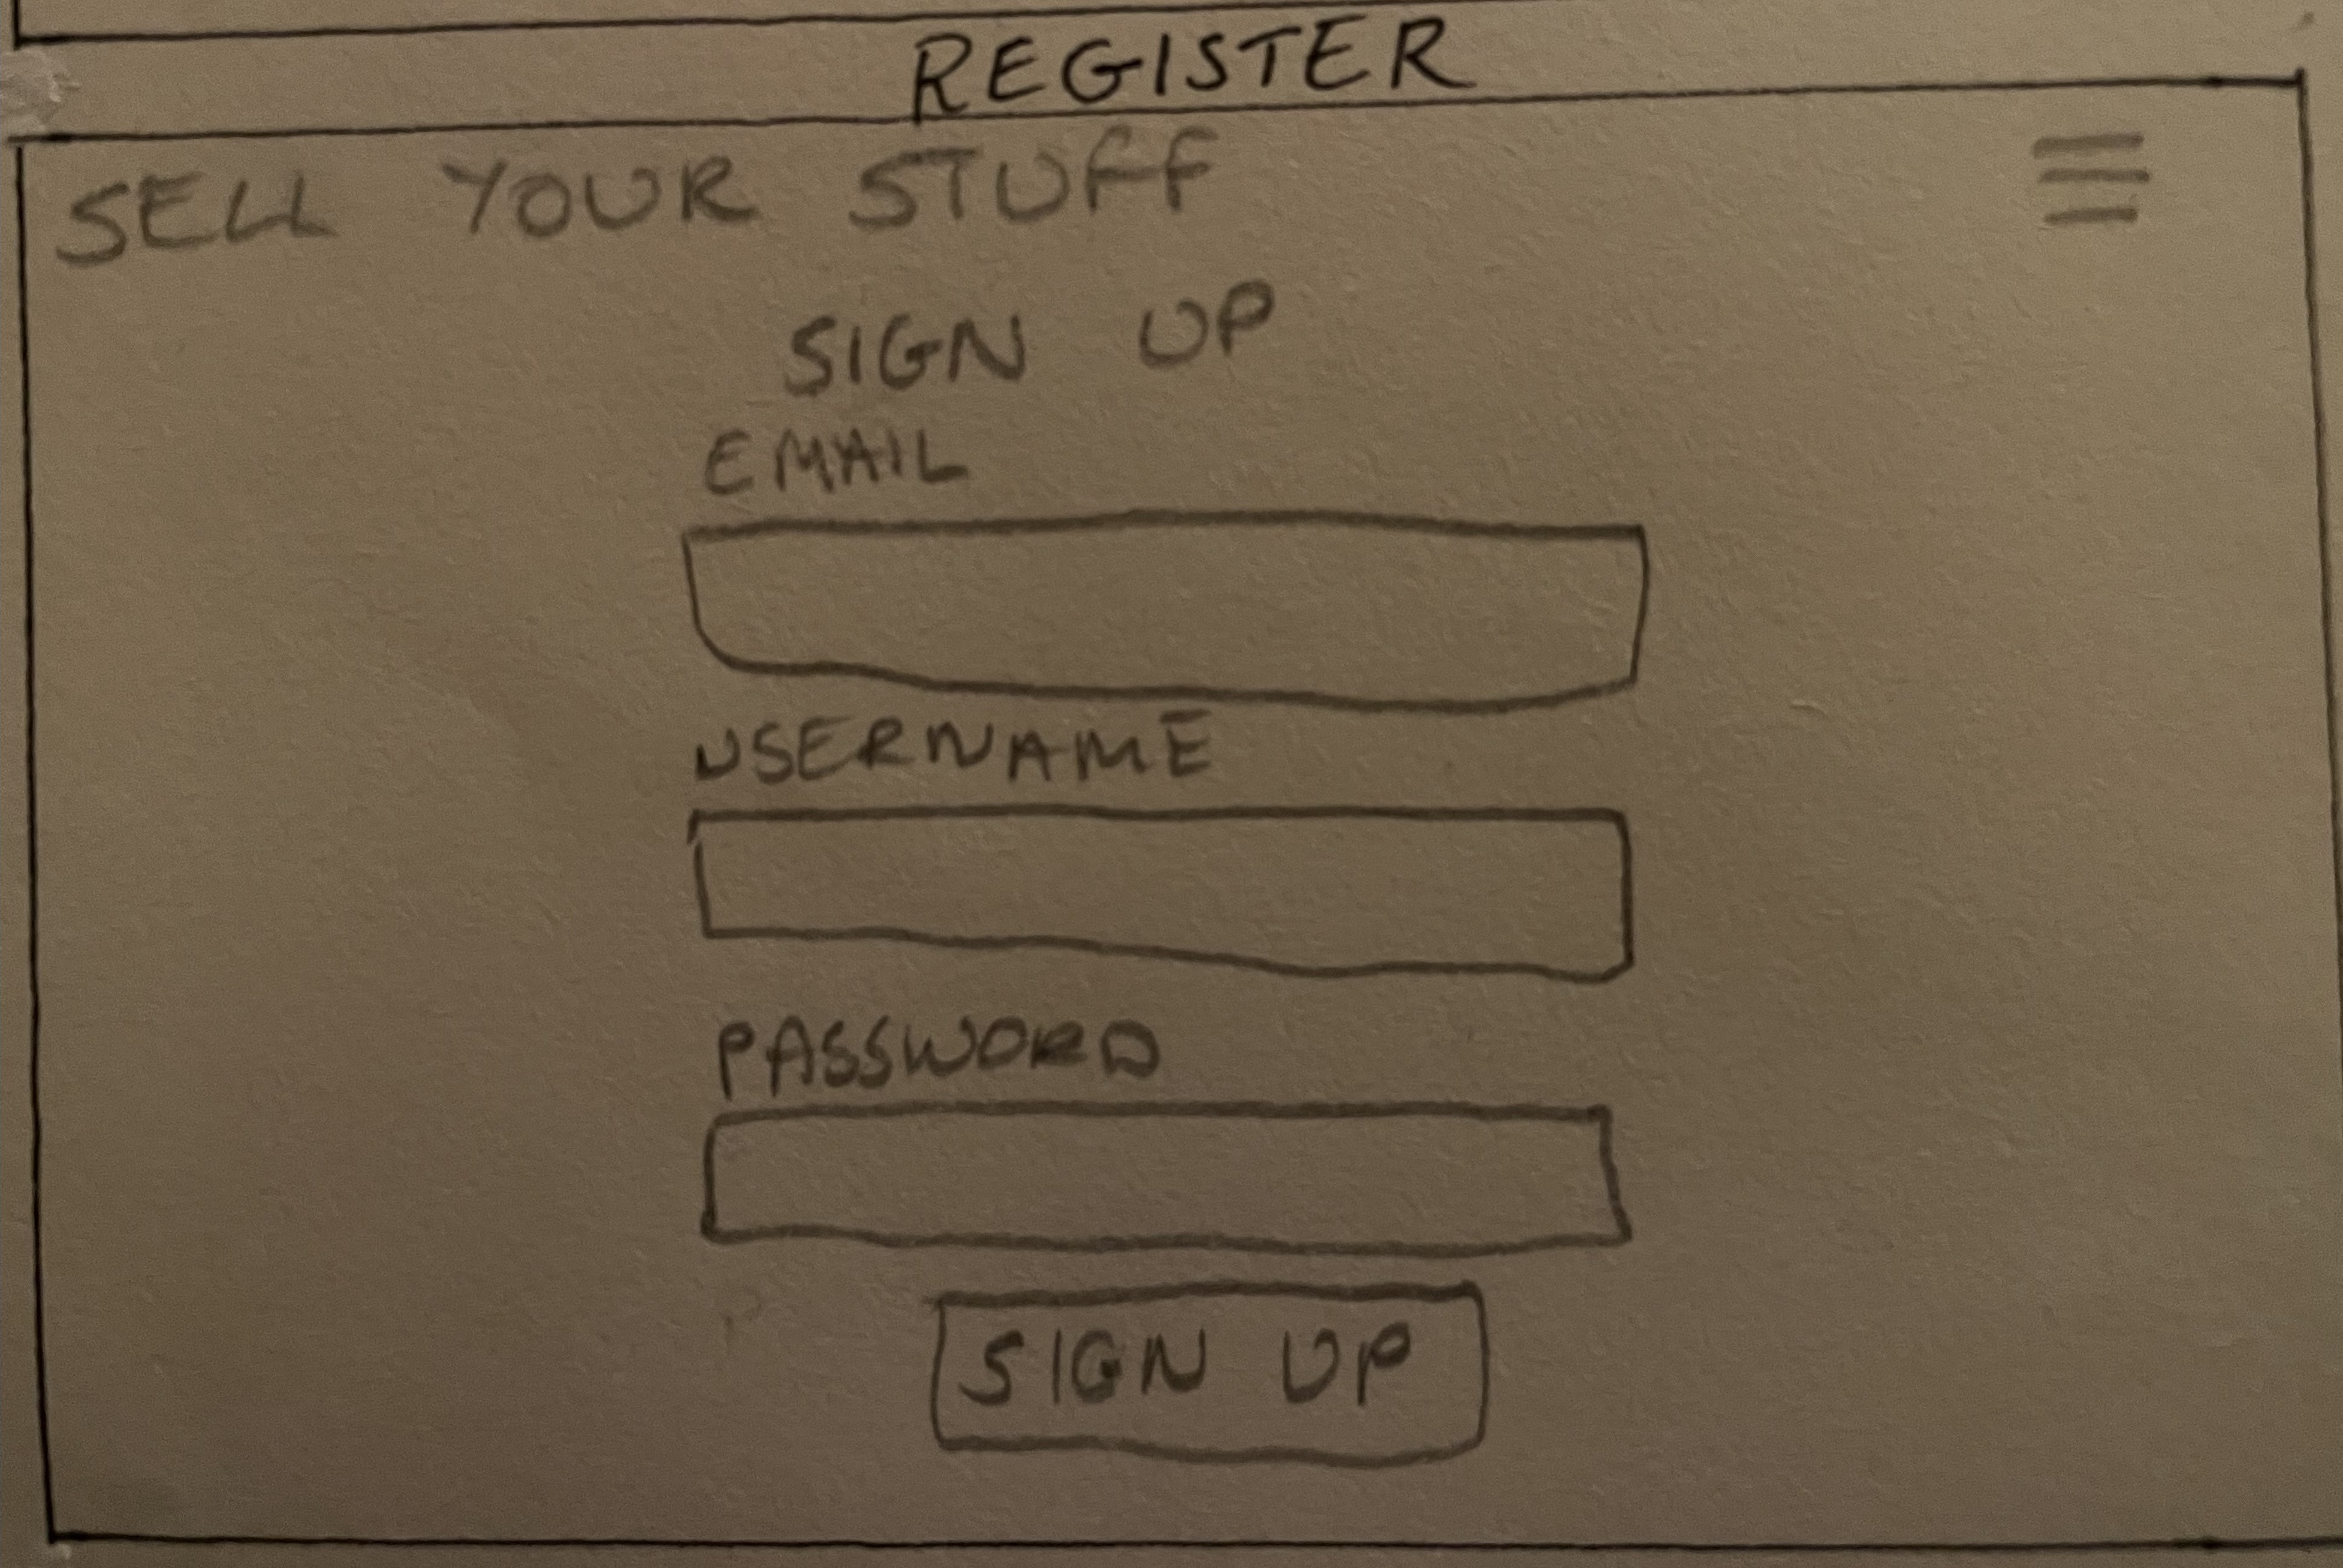 REGISTER
SELL YOUR STUFF
SIGN UP
EMAIL
USERNAME
PASSWORD
SIGN UP